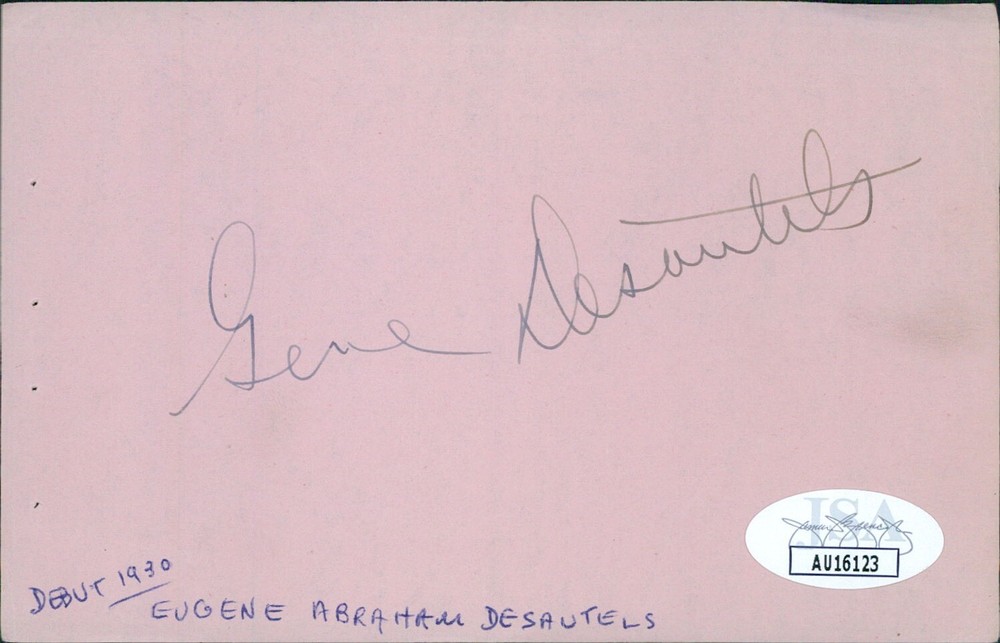 Gene Desautels
JSA
AU16123
DEBUT 1930
EUGENE ABRAHAM DESAUTELS